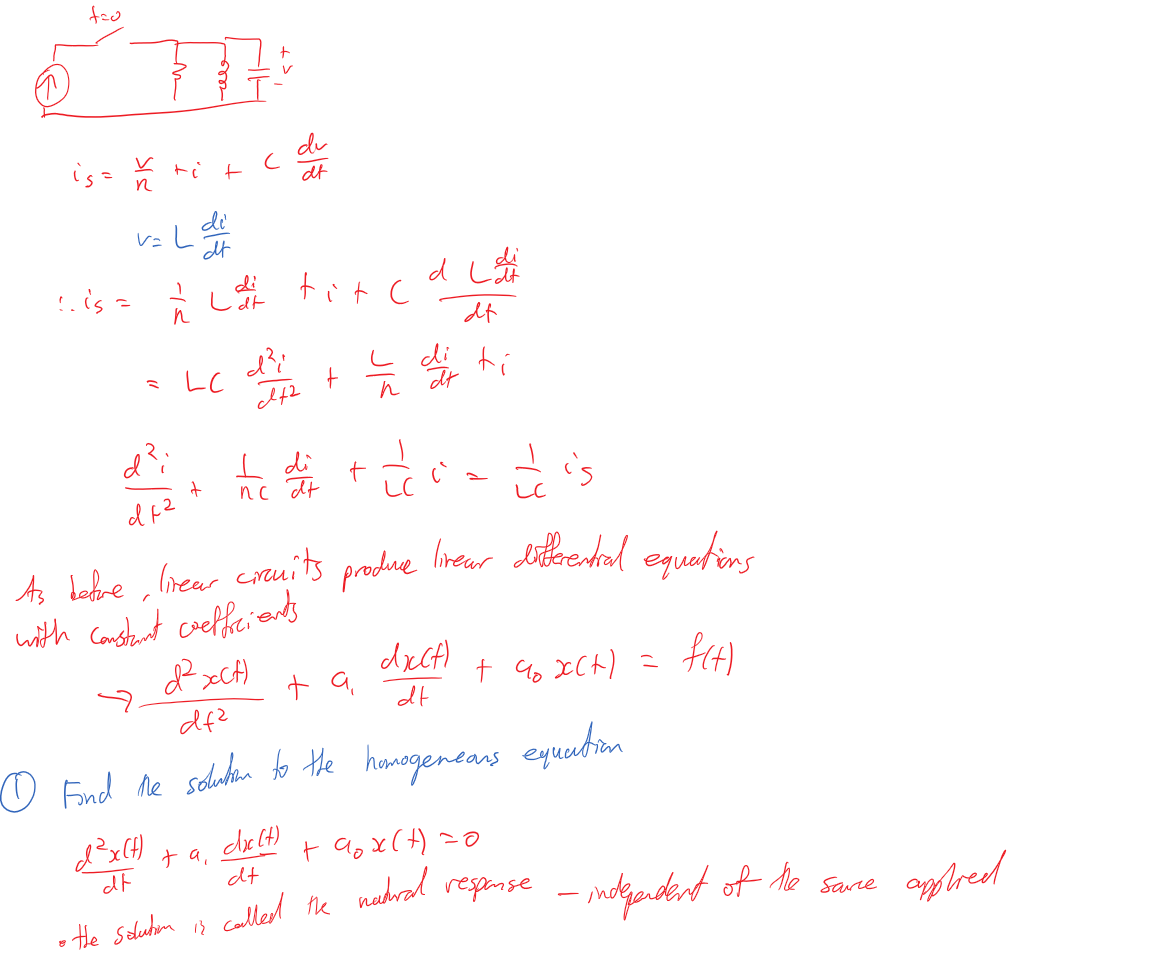 t=0
+
v
-
i_s = v/n + i + C dv/dt
v = L di/dt
∴ i_s = 1/n L di/dt + i + C d L di/dt / dt
= LC d²i/dt² + L/n di/dt + i
d²i/dt² + 1/nC di/dt + 1/LC i = 1/LC i_s
As before, linear circuits produce linear differential equations
with constant coefficients
→ d²x(t)/dt² + a₁ dx(t)/dt + a₀ x(t) = f(t)
① Find the solution to the homogeneous equation
d²x(t)/dt + a₁ dx(t)/dt + a₀ x(t) = 0
• the solution is called the natural response – independent of the source applied